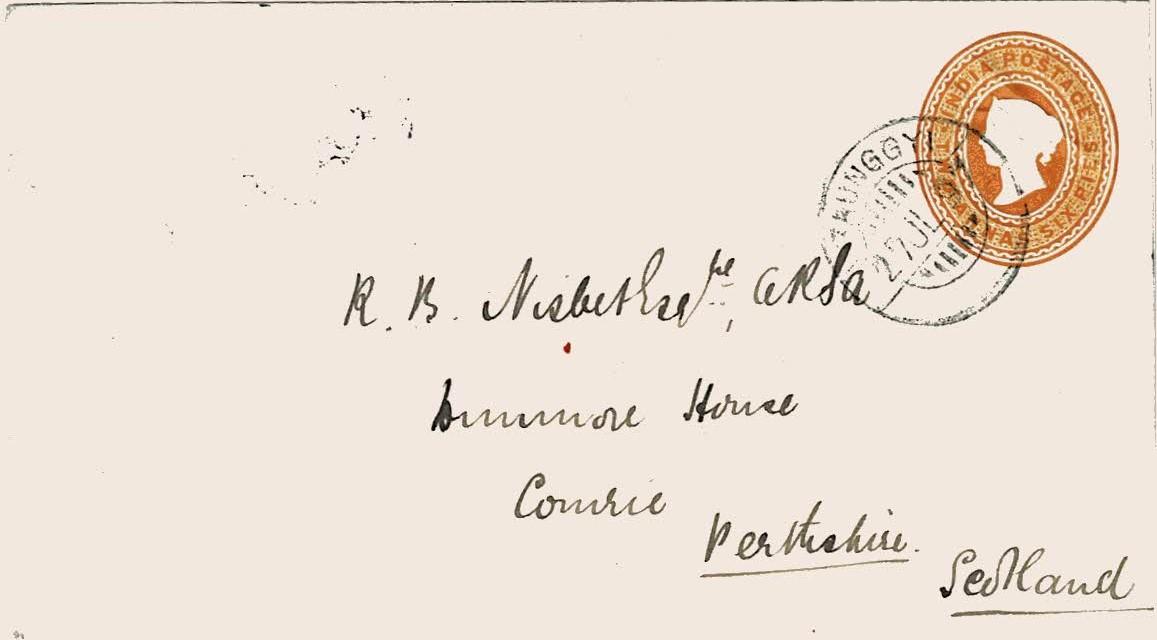 INDIA POSTAGE
ANNAS SIX PIES
TAUNGGYI
27 JUL
R. B. Nisbet Esqre, ARSA
Dunmore House
Comrie
Perthshire.
Scotland